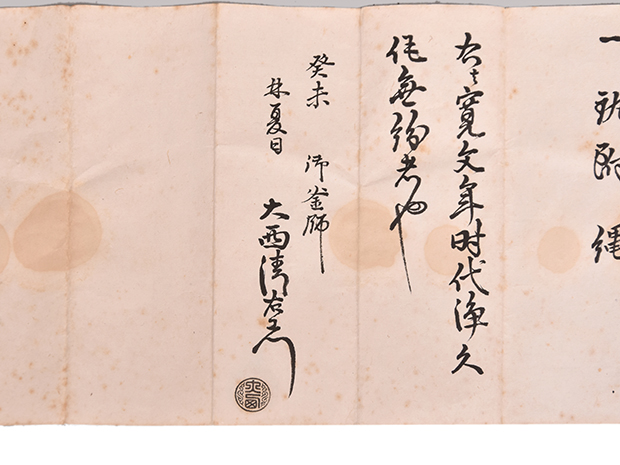 一
右ハ寛文年時代浄久
作無紛者也
癸未 御釜師
夏日 大西清右衛門
大西